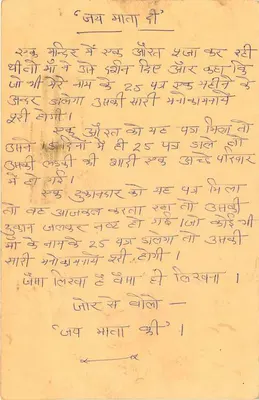 'जय माता दी'
एक मन्दिर में एक औरत पूजा कर रही
थी तो माँ ने उसे दर्शन दिए और कहा कि
जो भी मेरे नाम के 25 पत्र एक महीने के
अन्दर डालेगा उसकी सारी मनोकामनायें
पूरी होंगी।
एक औरत को यह पत्र मिला तो
उसने दिनों में ही 25 पत्र डाले तो
उसकी लड़की की शादी एक अच्छे परिवार
में हो गई।
एक दुकानदार को यह पत्र मिला
तो वह आजकल करता रहा तो उसकी
दुकान जलकर नष्ट हो गई। जो कोई भी
माँ के नाम के 25 पत्र डालेगा तो उसकी
सारी मनोकामनायें पूरी होगी।
जैसा लिखा है वैसा ही लिखना।
जोर से बोलो —
'जय माता की'।